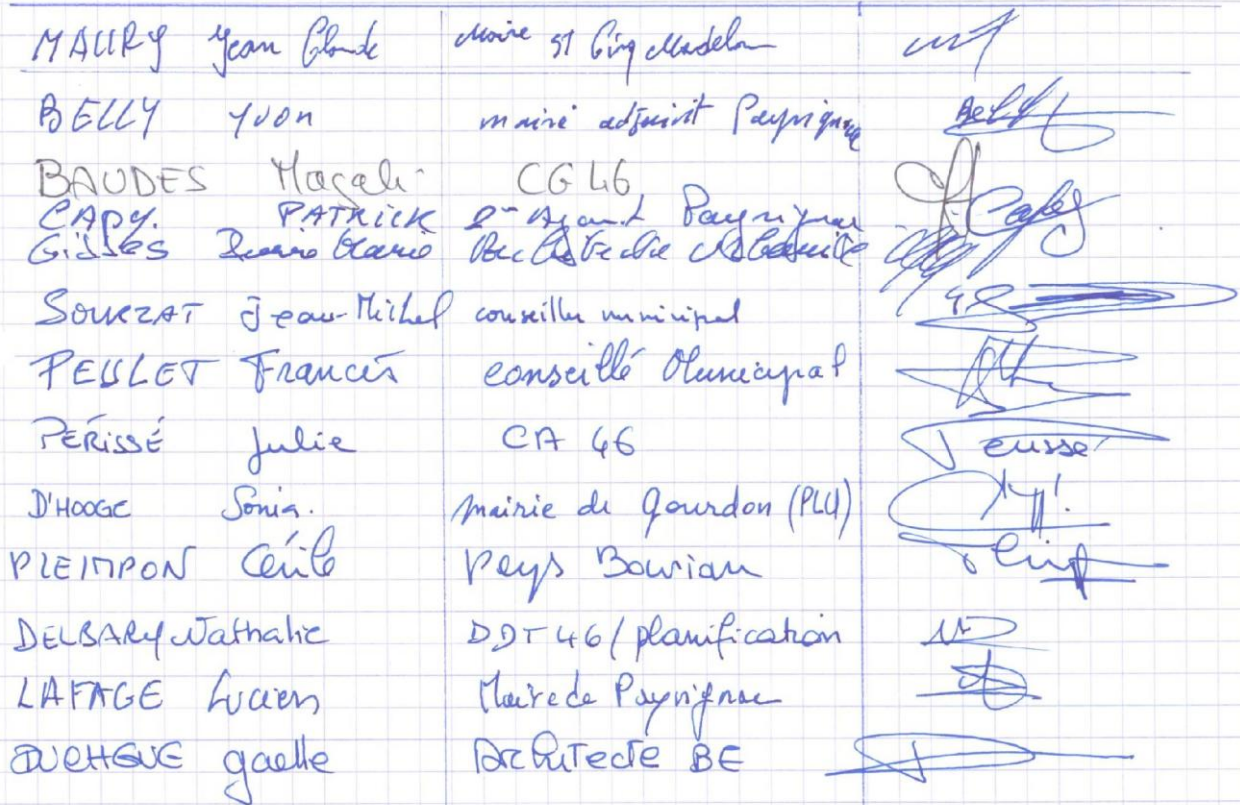 MAURY Jean Claude Maire St Cirq Madelon
BELLY Yvon maire adjoint Payrignac
BAUDES Magali CG 46
CAPY. PATRICK 2em Payrignac
GISSES Marie
SOURZAT Jean-Michel conseiller municipal
PEULET Francis conseillé Municipal
PÉRISSÉ Julie CA 46
D'HOOGE Sonia. mairie de Gourdon (PLU)
PLEIMPON Cécile Pays Bourian
DELBARY Nathalie DDT 46 / planification
LAFAGE Lucien Maire de Payrignac
gaelle Architecte BE